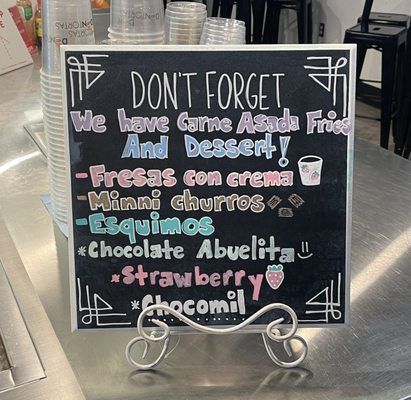 DON'T FORGET
We have Carne Asada Fries
And Dessert!
-Fresas con crema
-Minni churros
-Esquimos
*Chocolate Abuelita
*Strawberry
*Chocomil